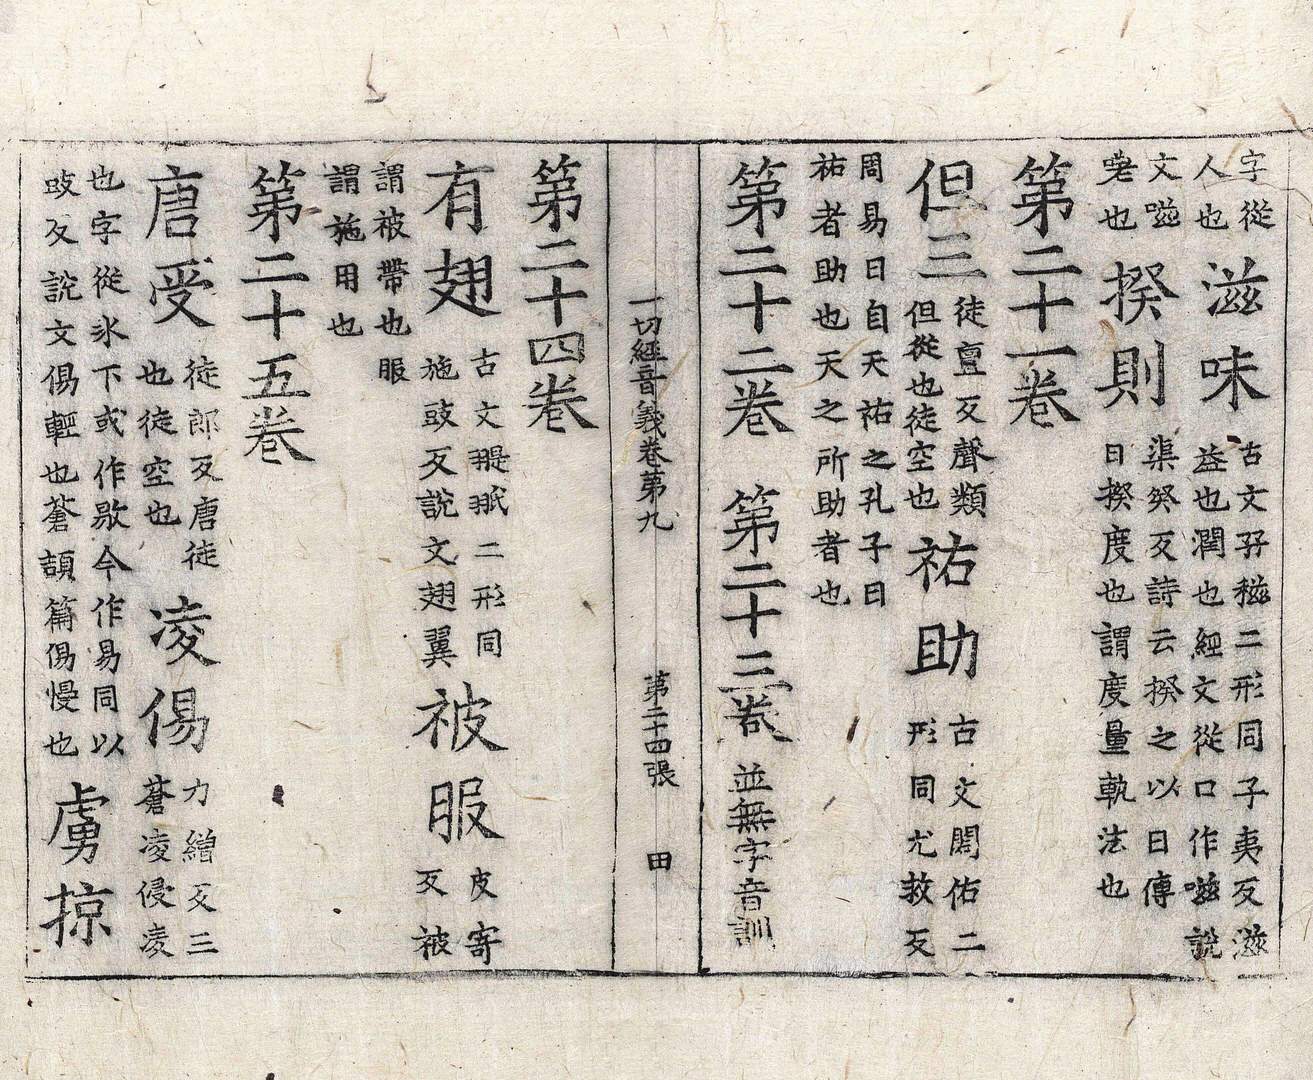 字從
人也
滋味
古文孖稵二形同子夷反滋
益也潤也經文從口作嗞說
文嗞
嗟也
揆則
渠癸反詩云揆之以日傳
曰揆度也謂度量軌法也
第二十一卷
但三
徒亶反聲類
但從也徒空也
祐助
古文閎佑二
形同尤救反
周易曰自天祐之孔子曰
祐者助也天之所助者也
第二十二卷 第二十三卷
並無字音訓
一切經音義卷第九 第二十四張 田
第二十四卷
有翅
古文翨𦐊二形同
施豉反說文翅翼
被服
皮寄
反被
謂被帶也服
謂施用也
第二十五卷
唐受
徒郎反唐徒
也徒空也
凌傷
力繒反三
蒼凌侵凌
也字從氷下或作敭今作易同以
豉反說文傷輕也蒼頡篇傷慢也
虜掠